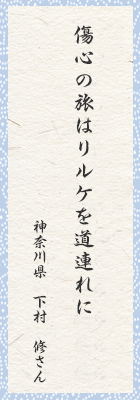 傷心の旅はリルケを道連れに
神奈川県 下村 修さん